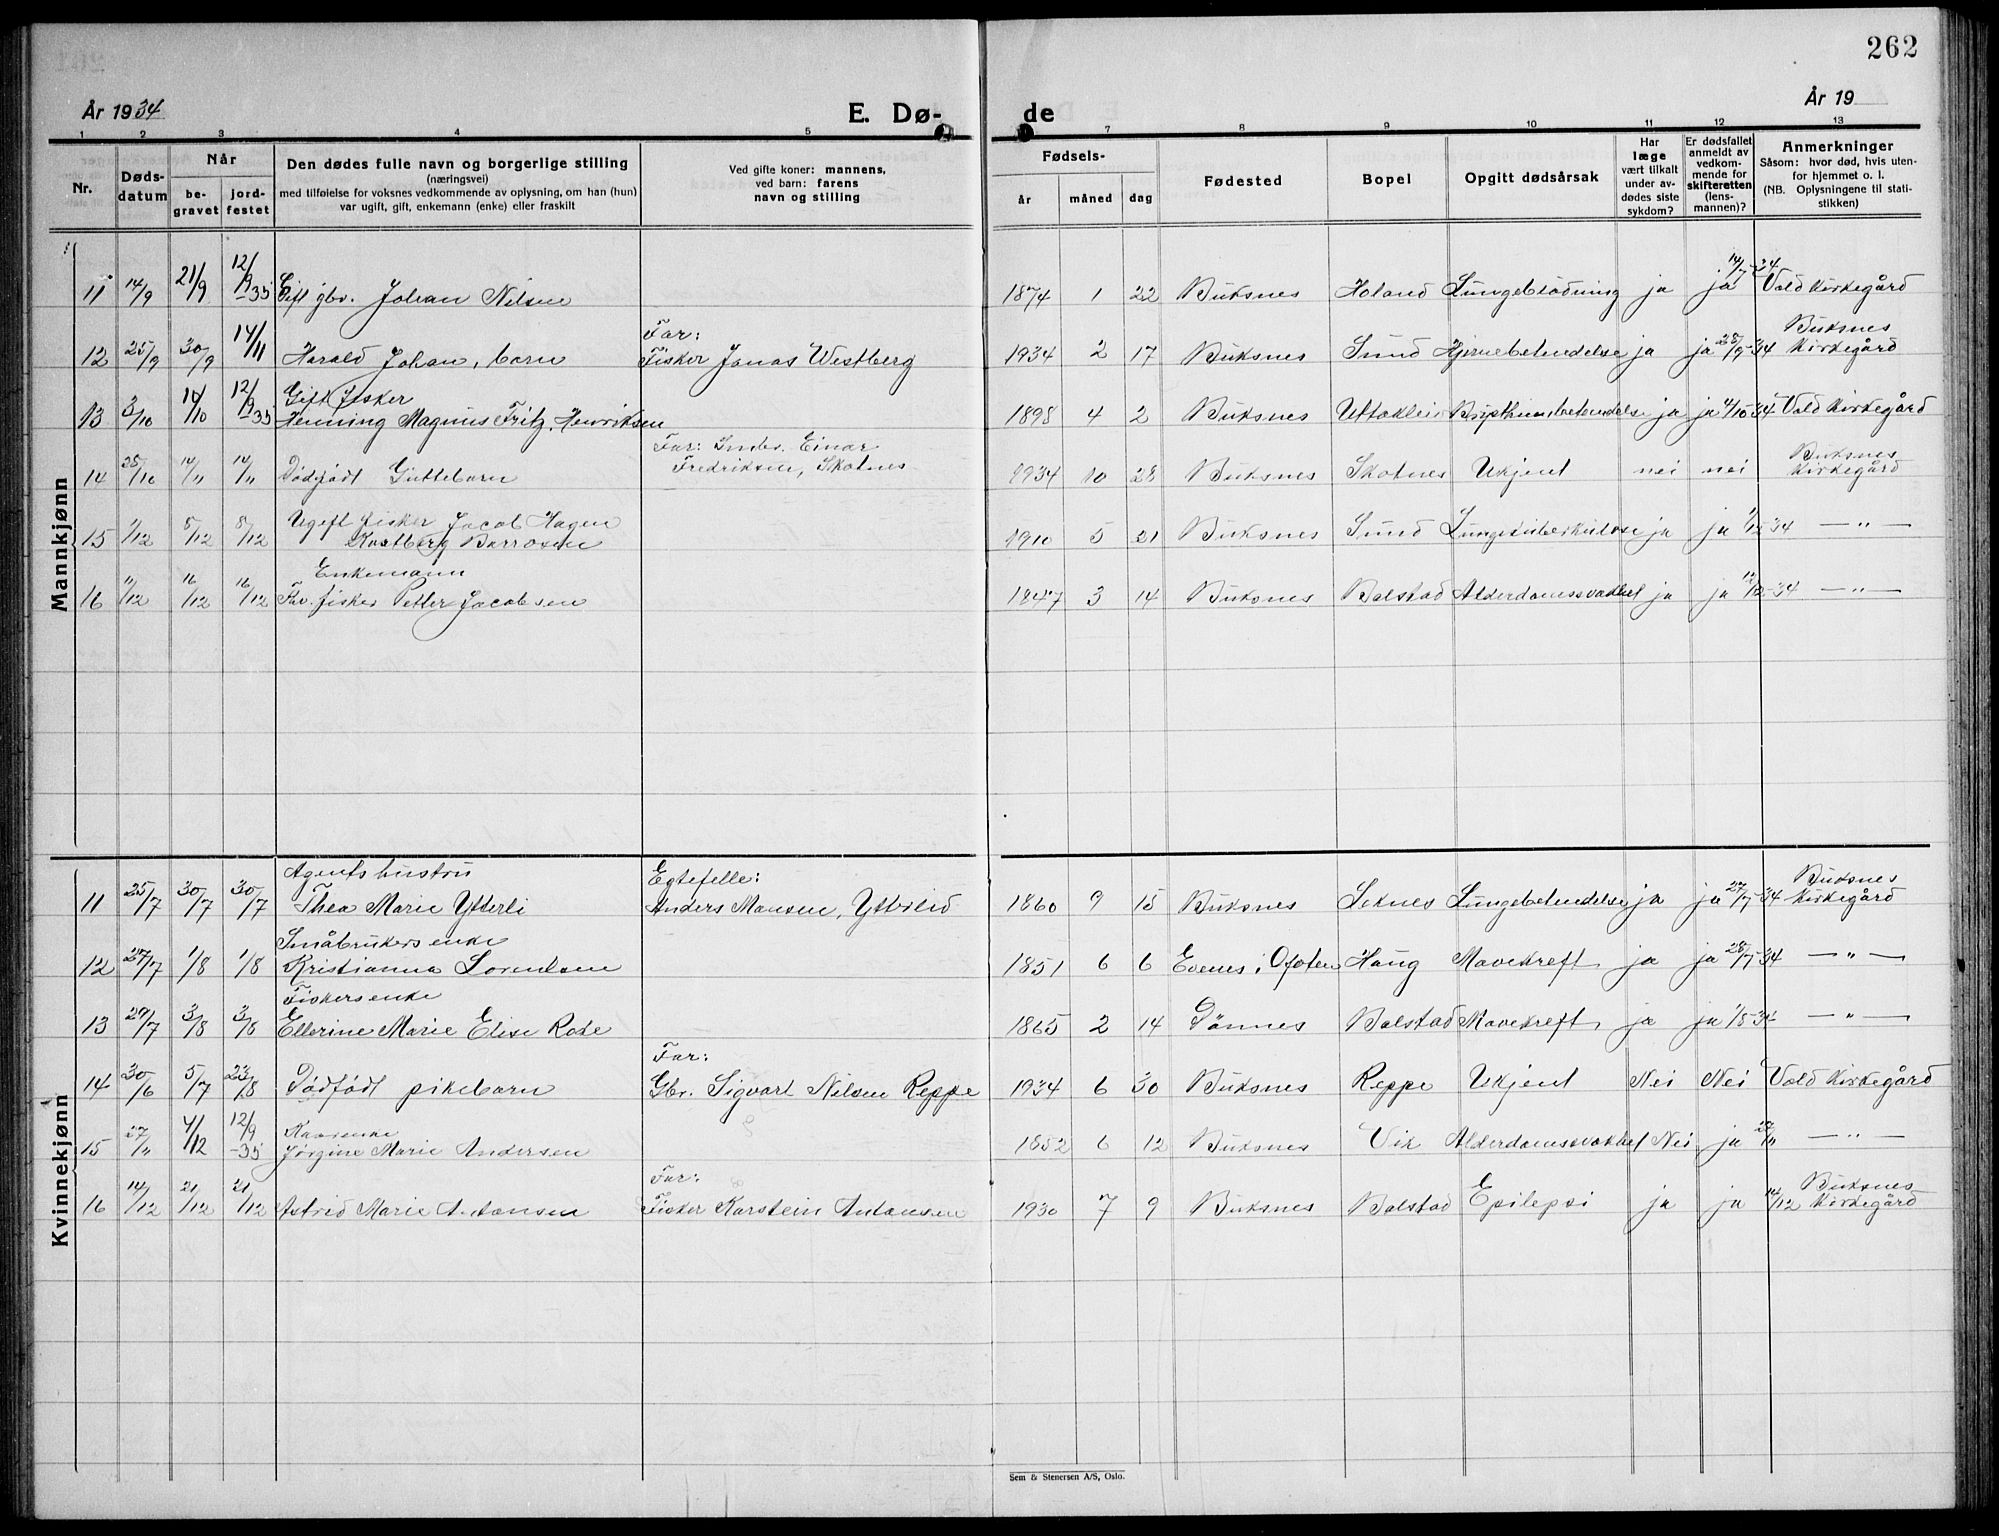 262
År 1934
E. Dø-
de
År 19
1 2 3 4 5 7 8 9 10 11 12 13
Nr.
Døds-
datum
Når
be-
gravet
jord-
festet
Den dødes fulle navn og borgerlige stilling
(næringsvei)
med tilføielse for voksnes vedkommende av oplysning, om han (hun)
var ugift, gift, enkemann (enke) eller fraskilt
Ved gifte koner: mannens,
ved barn: farens
navn og stilling
Fødsels-
år
måned
dag
Fødested
Bopel
Opgitt dødsårsak
Har
læge
vært tilkalt
under av-
dødes siste
sykdom?
Er dødsfallet
anmeldt av
vedkom-
mende for
skifteretten
(lens-
mannen)?
Anmerkninger
Såsom: hvor død, hvis uten-
for hjemmet o. l.
(NB. Oplysningene til stati-
stikken)
Mannkjønn
11 14/9 21/9 12/9-35 Gift gbr. Johan Nilsen 1874 1 22 Buksnes Holand Lungeblødning ja ja 14/9-34 Vold Kirkegård
Far: Buksnes
12 25/9 30/9 14/11 Harald Johan, barn Fisker Jonas Westberg 1934 2 17 Buksnes Sund Hjernebetendelse ja ja 28/9-34 Kirkegård
Gift fisker
13 3/10 14/10 12/9-35 Henning Magnus Fritz Henriksen 1898 4 2 Buksnes Uttakleiv ja ja 4/10-34 Vold Kirkegård
Far: Småbr. Einar Buksnes
14 28/10 14/11 14/11 Dødfødt Guttebarn Fredriksen, Skotnes 1934 10 28 Buksnes Skotnes Ukjent nei nei Kirkegård
Ugift fisker Jacob Hagen
15 1/12 8/12 8/12 Kvalberg 1910 5 21 Buksnes Sund Lungetuberkulose ja ja 1/12-34 — " —
Enkemann
16 11/12 16/12 16/12 Fhv. fisker Petter Jacobsen 1847 3 14 Buksnes Balstad Alderdomssvakhet ja ja 12/12-34 — " —
Kvinnekjønn
Agents hustru Egtefelle: Buksnes
11 25/7 30/7 30/7 Thea Marie Ytterli Anders Hansen, Ytterlid 1860 9 15 Buksnes Leknes Lungebetendelse ja ja 27/7-34 Kirkegård
Småbrukers enke
12 27/7 1/8 1/8 Kristianna Lorentsen 1851 6 6 Evenes i Ofoten Haug Mavekreft ja ja 28/7-34 — " —
Fiskers enke
13 29/7 3/8 3/8 Ellerine Marie Elise Rode 1865 2 14 Dønnes Balstad Mavekreft ja ja 1/8-34 — " —
Far:
14 30/6 5/7 23/8 Dødfødt pikebarn Gbr. Sigvart Nilsen Reppe 1934 6 30 Buksnes Reppe Ukjent Nei Nei Vold Kirkegård
Kaarenke
15 27/11 4/12 12/9-35 Jørgine Marie Andersen 1852 6 12 Buksnes Vik Alderdomssvakhet Nei ja — " —
Far: Buksnes
16 14/12 21/12 21/12 Astrid Marie Antonsen Fisker Karstein Antonsen 1930 7 9 Buksnes Balstad Epilepsi ja ja 14/12 Kirkegård
Sem & Stenersen A/S, Oslo.